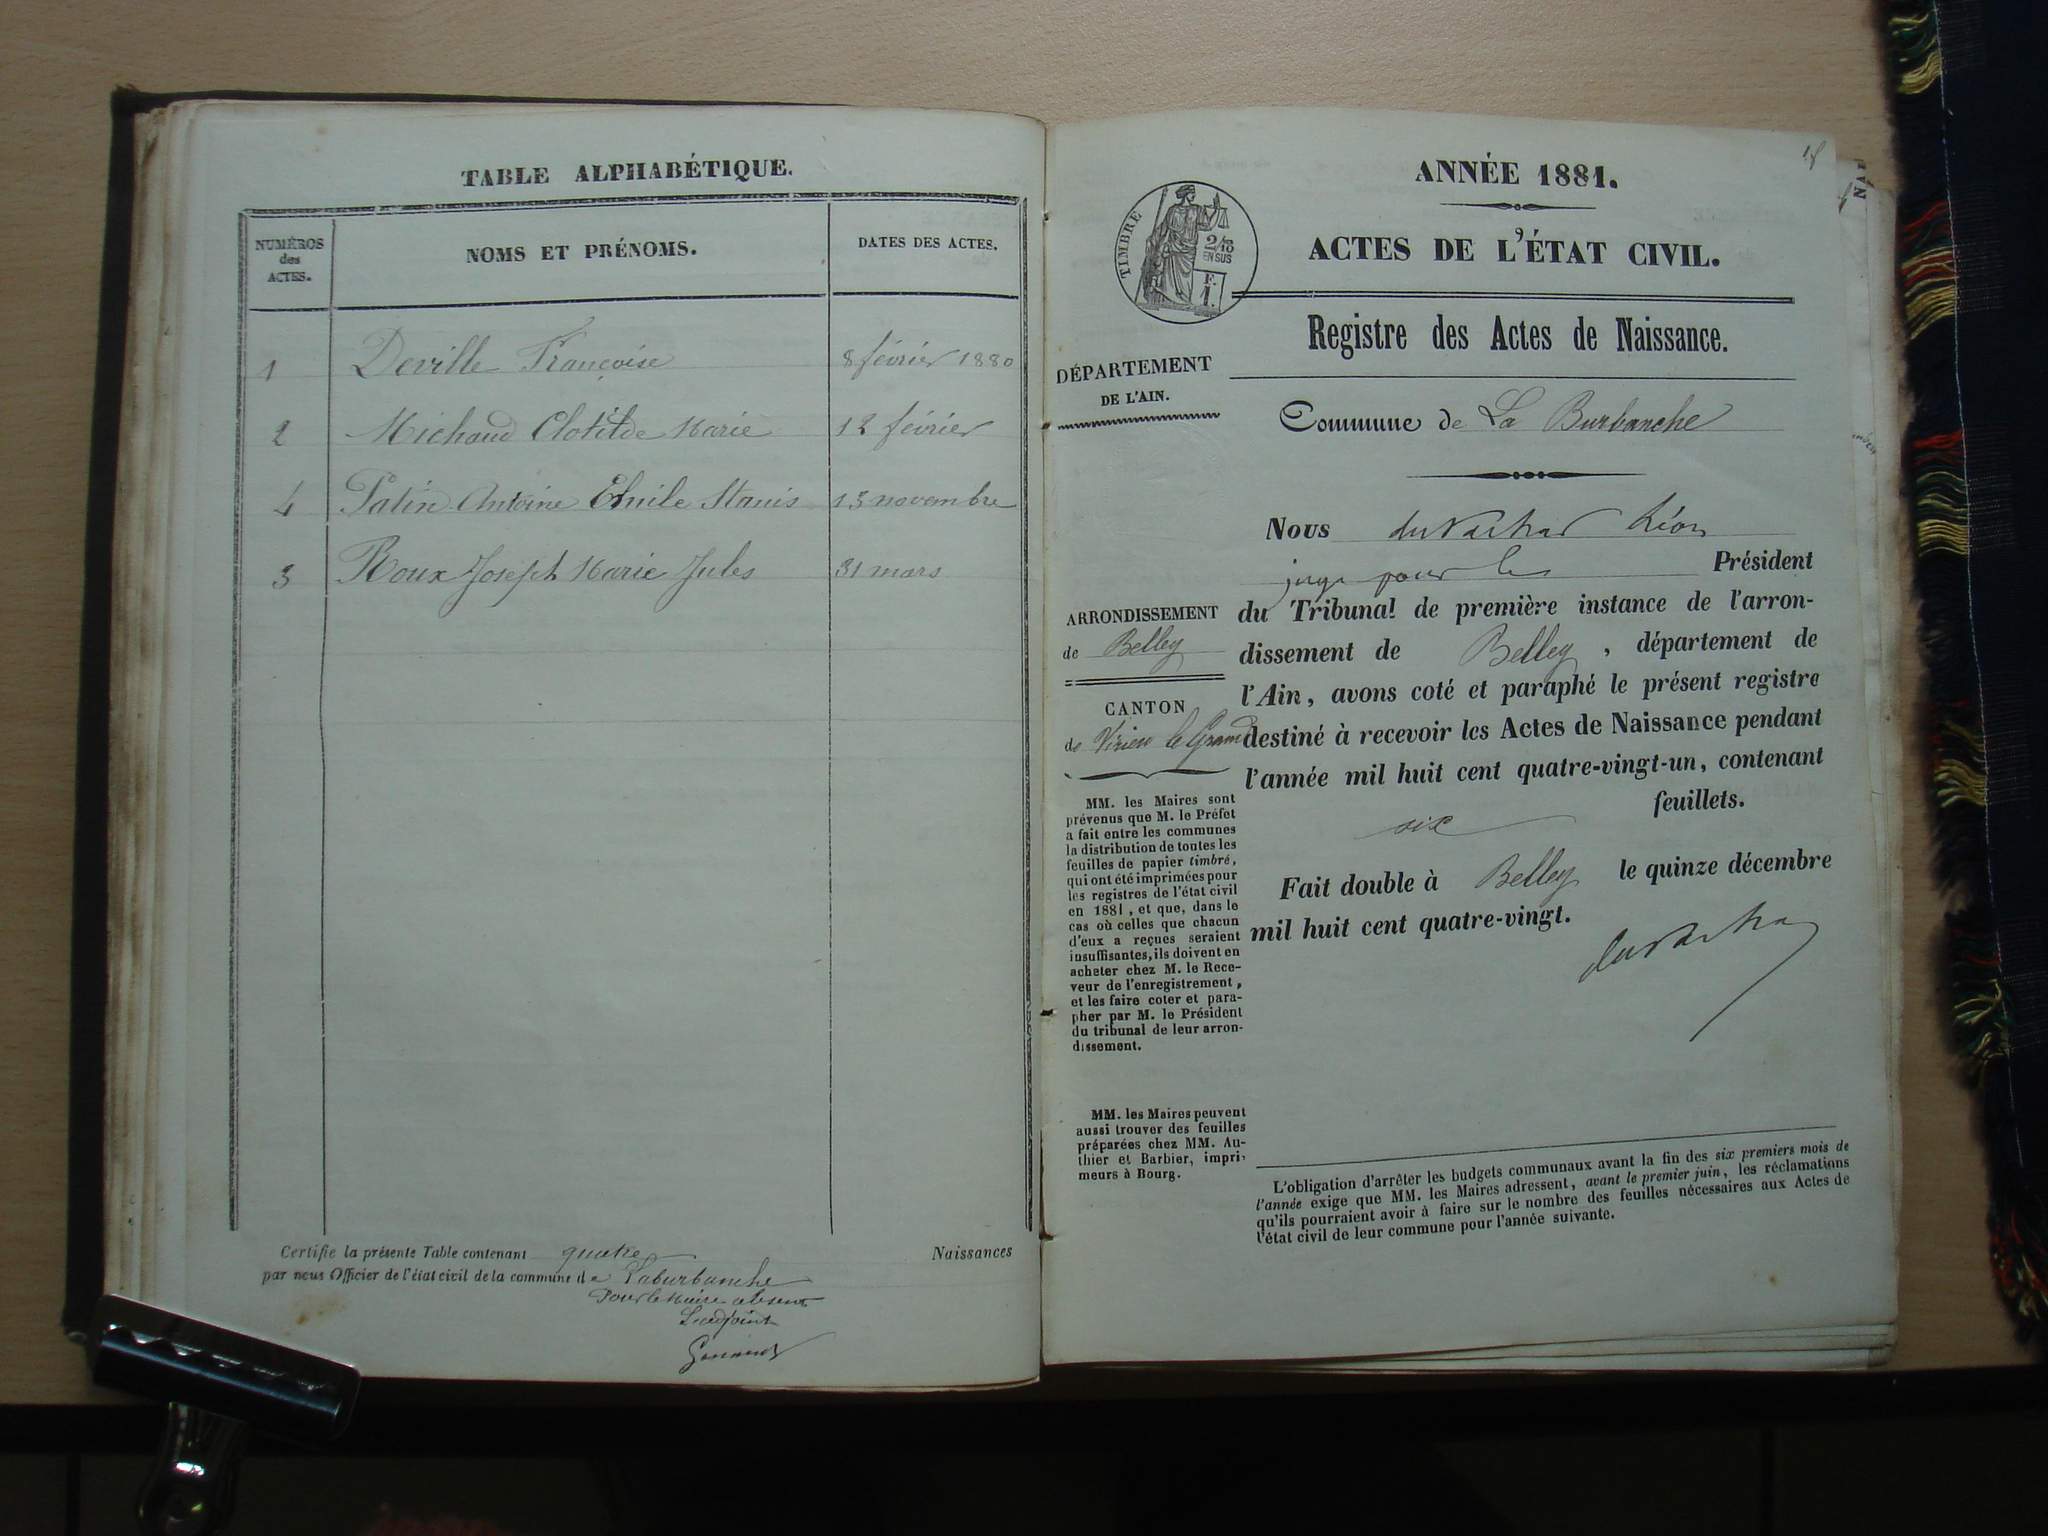 TABLE ALPHABÉTIQUE.
NUMÉROS
des
ACTES.
NOMS ET PRÉNOMS.
DATES DES ACTES.
1 Deville Françoise 8 février 1880
2 Michaud Clotilde Marie 12 février
4 Patin Antoine Emile Stanis 13 novembre
3 Roux Joseph Marie Jules 31 mars
Certifie la présente Table contenant quatre Naissances
par nous Officier de l'état civil de la commune de Laburbanche
Pour le Maire absent
L'adjoint
18
ANNÉE 1881.
TIMBRE
2/10
EN SUS
F.
1.
ACTES DE L'ÉTAT CIVIL.
Registre des Actes de Naissance.
DÉPARTEMENT
DE L'AIN.
Commune de La Burbanche
Nous Léon
juge pour le Président
du Tribunal de première instance de l'arron-
dissement de Belley, département de
l'Ain, avons coté et paraphé le présent registre
destiné à recevoir les Actes de Naissance pendant
l'année mil huit cent quatre-vingt-un, contenant
six feuillets.
Fait double à Belley le quinze décembre
mil huit cent quatre-vingt.
ARRONDISSEMENT
de Belley
CANTON
de Virieu le Grand
MM. les Maires sont
prévenus que M. le Préfet
a fait entre les communes
la distribution de toutes les
feuilles de papier timbré,
qui ont été imprimées pour
les registres de l'état civil
en 1881, et que, dans le
cas où celles que chacun
d'eux a reçues seraient
insuffisantes, ils doivent en
acheter chez M. le Rece-
veur de l'enregistrement,
et les faire coter et para-
pher par M. le Président
du tribunal de leur arron-
dissement.
MM. les Maires peuvent
aussi trouver des feuilles
préparées chez MM. Au-
thier et Barbier, impri-
meurs à Bourg.
L'obligation d'arrêter les budgets communaux avant la fin des six premiers mois de
l'année exige que MM. les Maires adressent, avant le premier juin, les réclamations
qu'ils pourraient avoir à faire sur le nombre des feuilles nécessaires aux Actes de
l'état civil de leur commune pour l'année suivante.